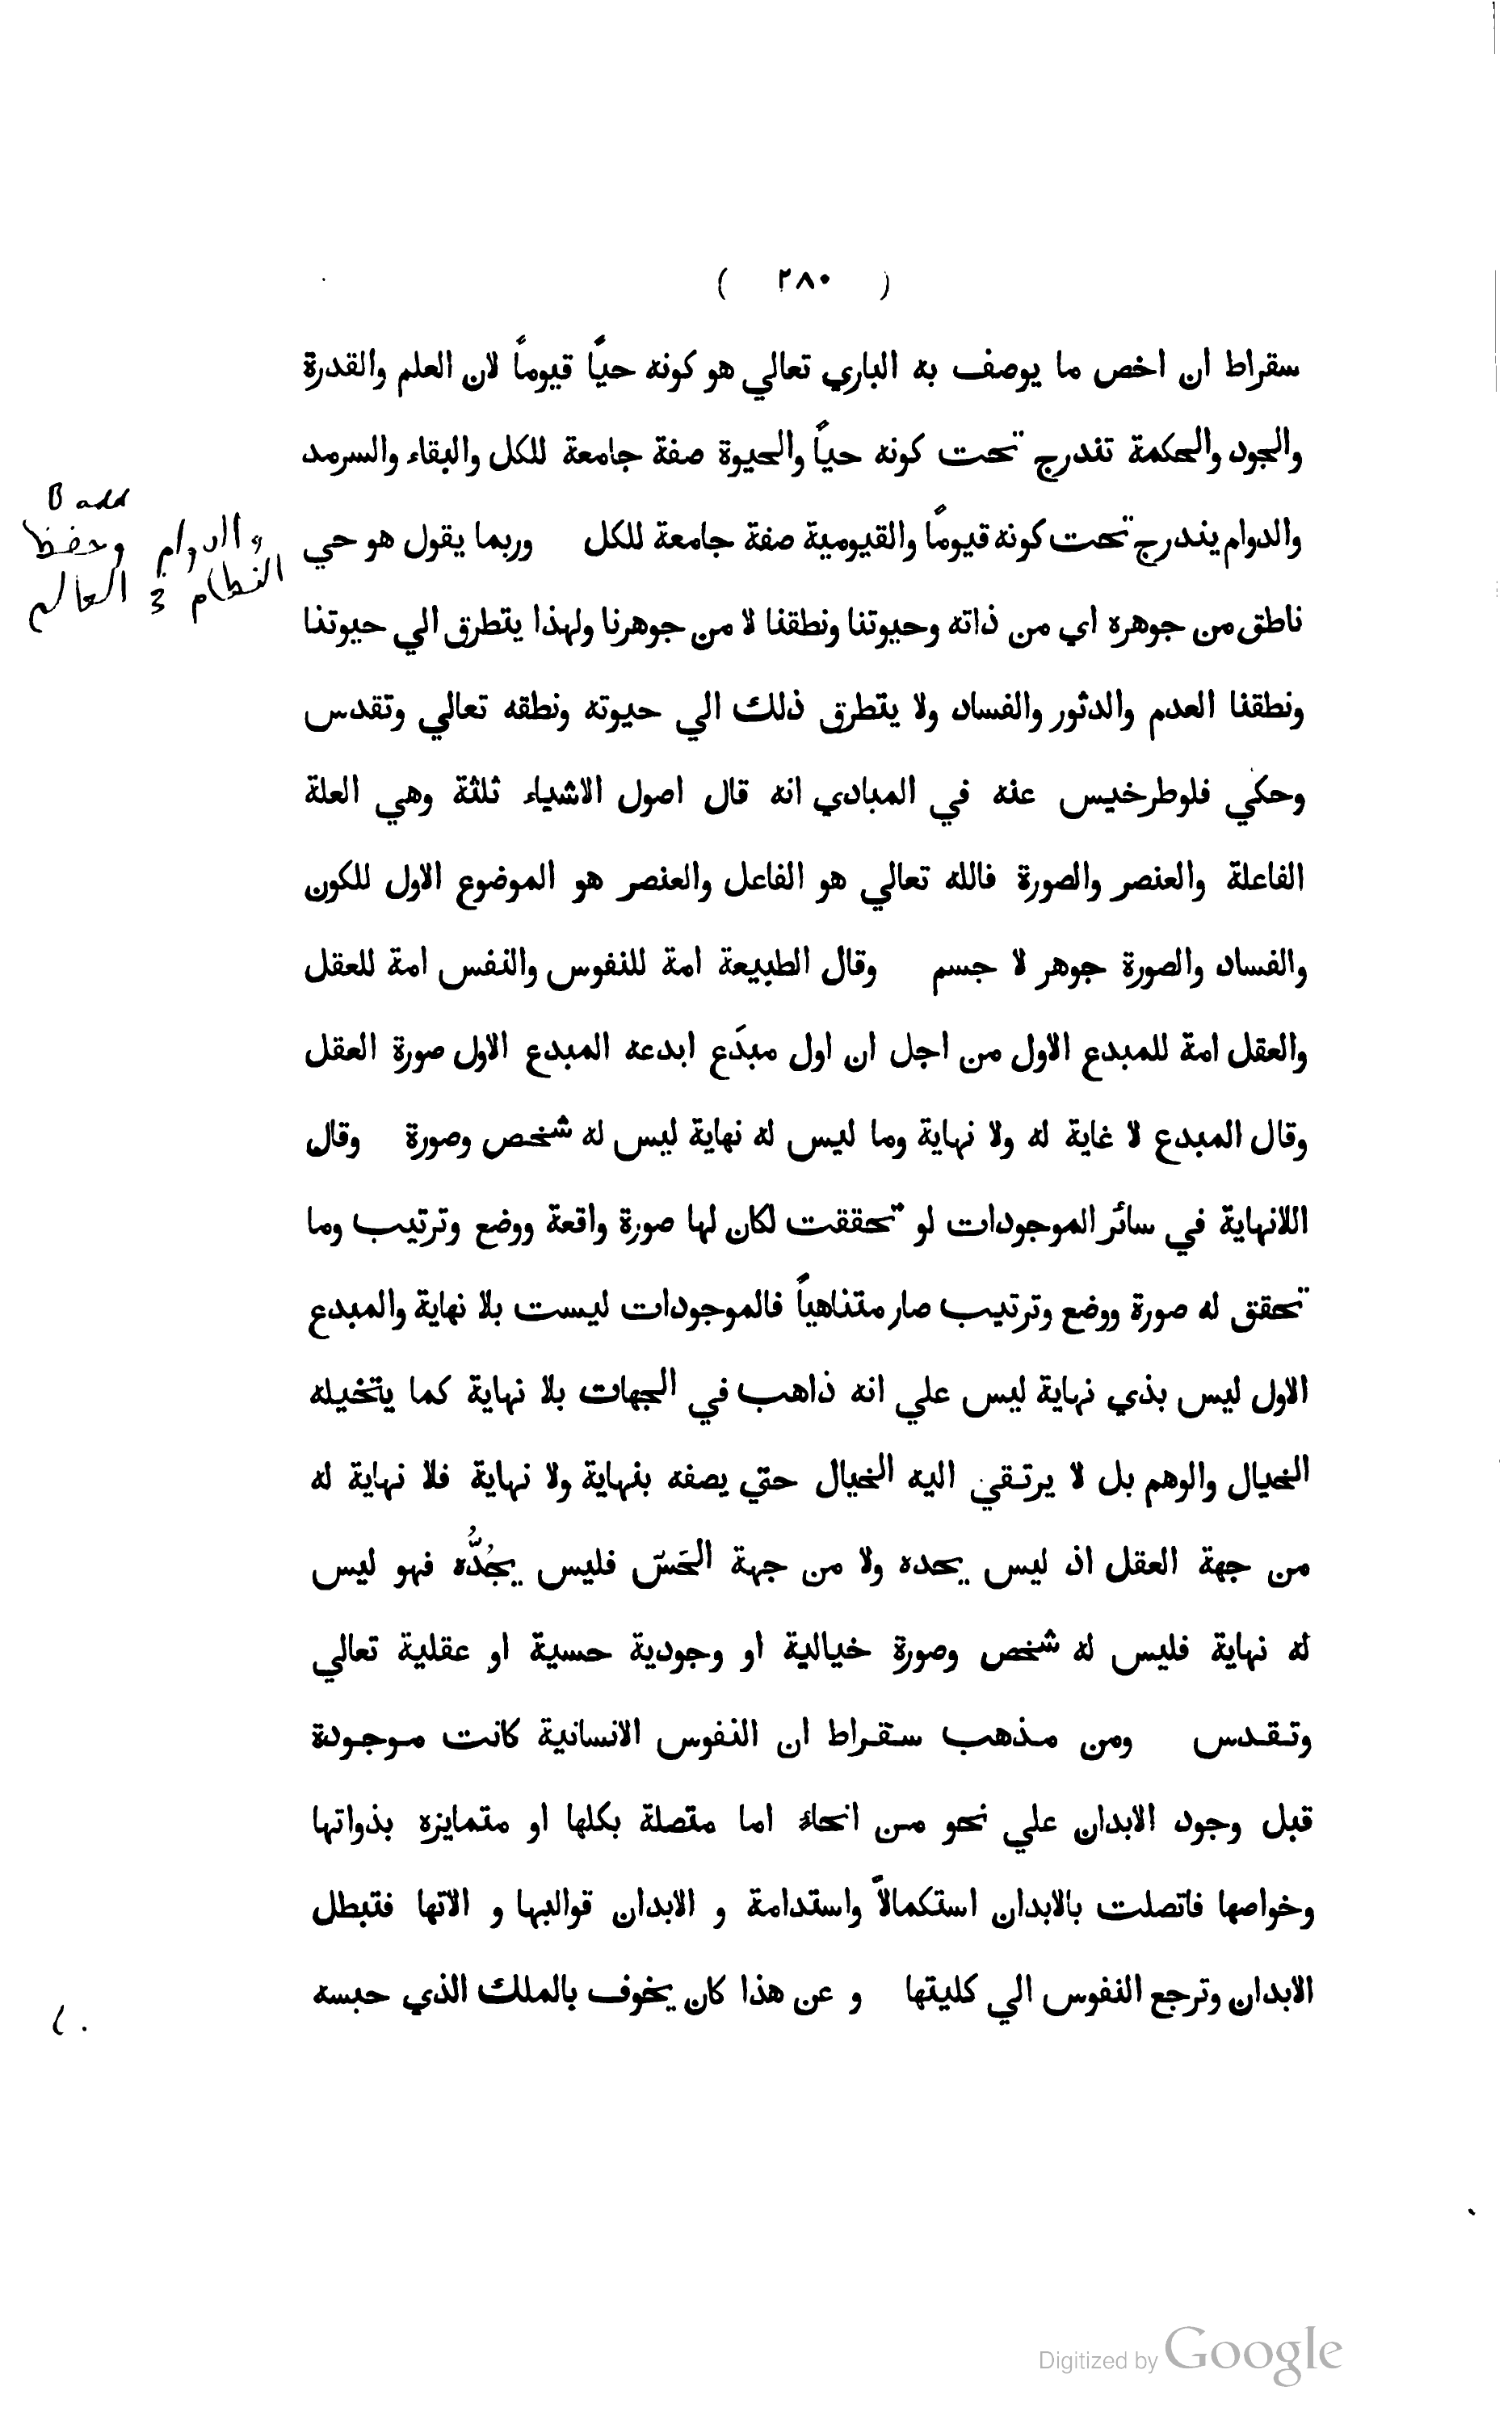 ( ٢٨٠ )
سقراط ان اخص ما يوصف به الباري تعالي هو كونه حيًّا قيومًا لان العلم والقدرة
والجود والحكمة تندرج تحت كونه حيًّا والحيوة صفة جامعة للكل والبقاء والسرمد
والدوام يندرج تحت كونه قيومًا والقيومية صفة جامعة للكل وربما يقول هو حي
ناطق من جوهره اي من ذاته وحيوتنا ونطقنا لا من جوهرنا ولهذا يتطرق الي حيوتنا
ونطقنا العدم والدثور والفساد ولا يتطرق ذلك الي حيوته ونطقه تعالي وتقدس
وحكي فلوطرخيس عنه في المبادي انه قال اصول الاشياء ثلثة وهي العلة
الفاعلة والعنصر والصورة فالله تعالي هو الفاعل والعنصر هو الموضوع الاول للكون
والفساد والصورة جوهر لا جسم وقال الطبيعة امة للنفوس والنفس امة للعقل
والعقل امة للمبدع الاول من اجل ان اول مبدَع ابدعه المبدع الاول صورة العقل
وقال المبدع لا غاية له ولا نهاية وما ليس له نهاية ليس له شخص وصورة وقال
اللانهاية في سائر الموجودات لو تحققت لكان لها صورة واقعة ووضع وترتيب وما
تحقق له صورة ووضع وترتيب صار متناهيًا فالموجودات ليست بلا نهاية والمبدع
الاول ليس بذي نهاية ليس علي انه ذاهب في الجهات بلا نهاية كما يتخيله
الخيال والوهم بل لا يرتقي اليه الخيال حتي يصفه بنهاية ولا نهاية فلا نهاية له
من جهة العقل اذ ليس يحده ولا من جهة الحَسّ فليس يجُدُّه فهو ليس
له نهاية فليس له شخص وصورة خيالية او وجودية حسية او عقلية تعالي
وتقدس ومن مذهب سقراط ان النفوس الانسانية كانت موجودة
قبل وجود الابدان علي نحو من انحاء اما متصلة بكلها او متمايزه بذواتها
وخواصها فاتصلت بالابدان استكمالًا واستدامة و الابدان قوالبها و الاتها فتبطل
الابدان وترجع النفوس الي كليتها و عن هذا كان يخوف بالملك الذي حبسه
B add
والدوام وحفظ
النظام العالم
Digitized by Google